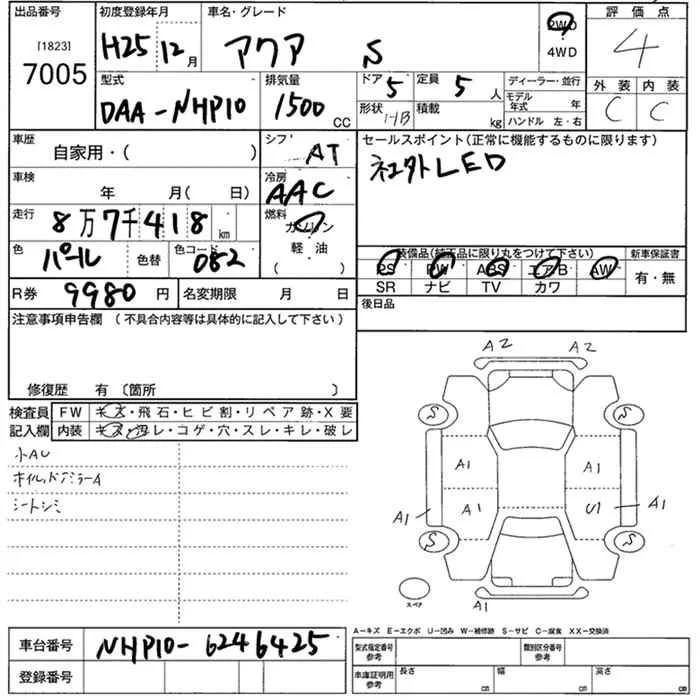 出品番号
[1823]
7005
初度登録年月
H25 12月
車名・グレード
アクア S
2WD
4WD
評価点
4
型式
DAA-NHP10
排気量
1500 CC
ドア 5
定員 5 人
形状 HB
積載 kg
ディーラー・並行
モデル年式 年
ハンドル 左・右
外装 内装
C C
車歴
自家用・( )
シフト
AT
車検
年 月( 日)
冷房
AAC
走行
8万7千418km
燃料
ガソリン
軽油
( )
色
パール
色替
色コード
082
R券 9980円
名変期限 月 日
セールスポイント(正常に機能するものに限ります)
LED
装備品(純正品に限り丸をつけて下さい)
PS PW ABS エアB AW
SR ナビ TV カワ
新車保証書
有・無
後日品
注意事項申告欄 (不具合内容等は具体的に記入して下さい)
修復歴 有 〔箇所 〕
検査員記入欄
FW キズ・飛石・ヒビ割・リペア跡・X要
内装 キズ・汚レ・コゲ・穴・スレ・キレ・破レ
小AU
シートシミ
A2 A2
S S
A1 A1
A1 A1 U1 A1
S S
スペア
A1
A-キズ E-エクボ U-凹み W-補修跡 S-サビ C-腐食 XX-交換済
車台番号
NHP10-6246425
登録番号
型式指定番号参考
類別区分番号参考
車庫証明用参考
長さ cm
幅 cm
高さ cm